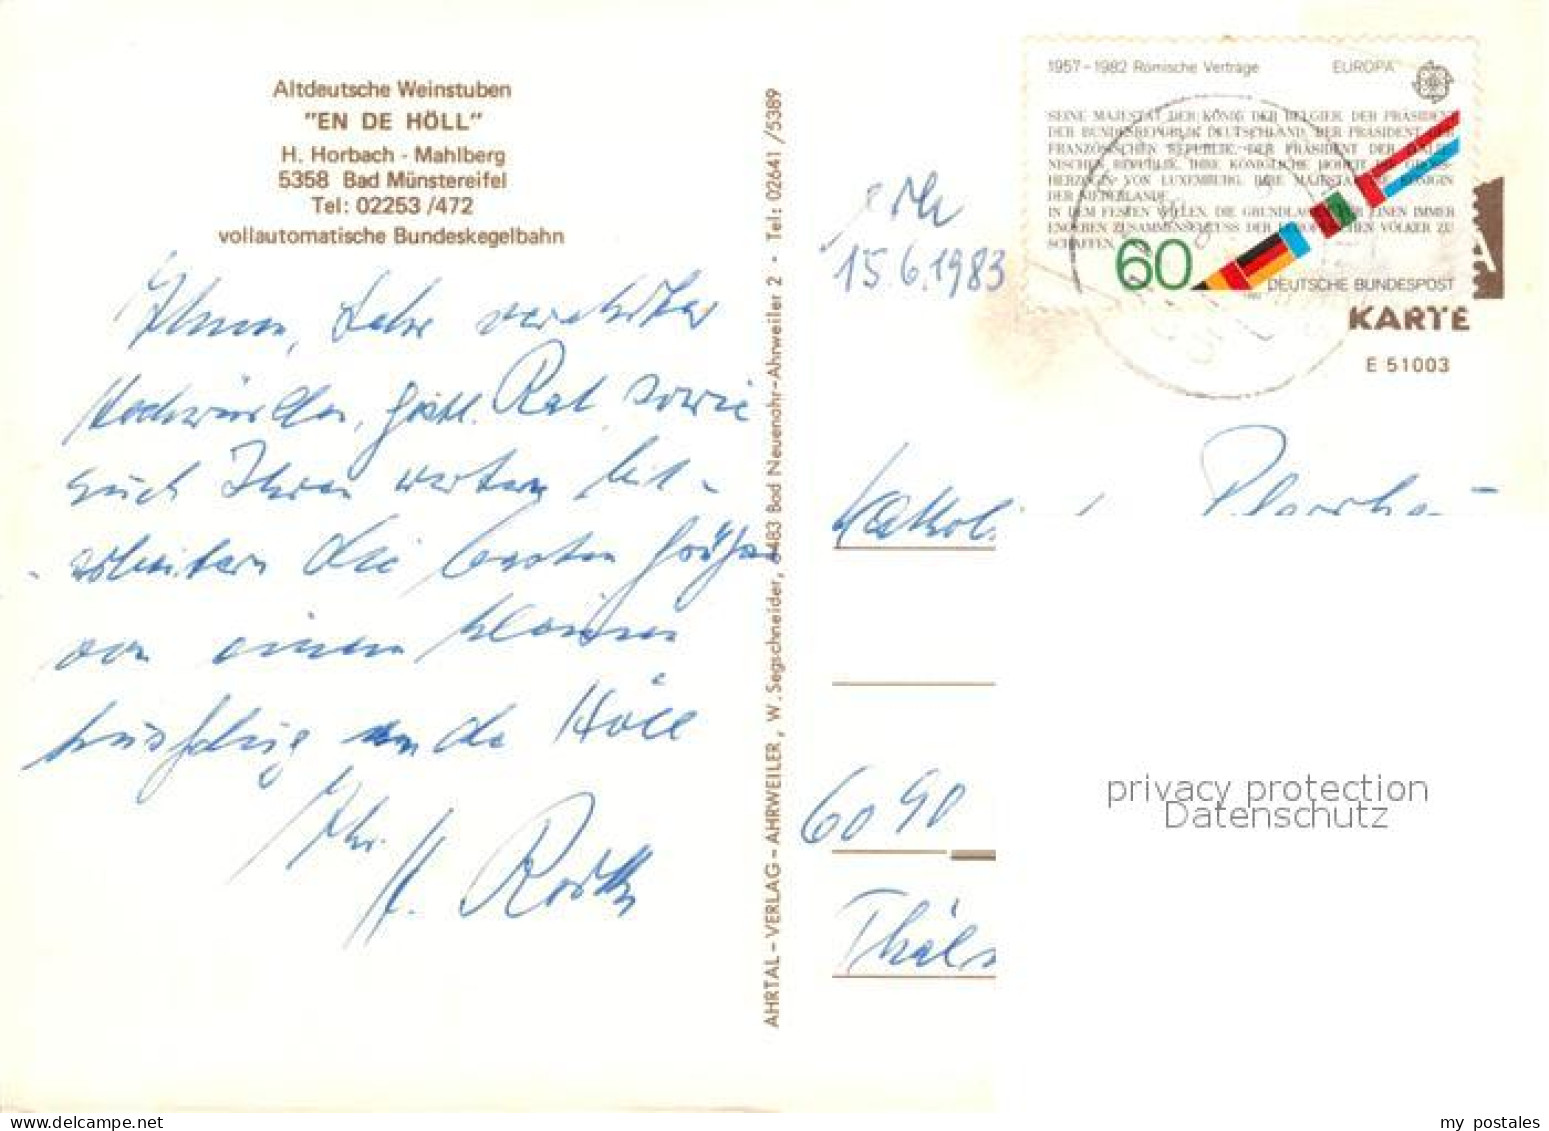 Altdeutsche Weinstuben
"EN DE HÖLL"
H. Horbach - Mahlberg
5358 Bad Münstereifel
Tel: 02253 /472
vollautomatische Bundeskegelbahn
Ihnen, sehr verehrter
Hochwürden, geistl. Rat, sowie
auch Ihren werten Mit-
arbeitern die besten Grüße
von einem kleinen
Ausflug en de Höll
Ihr
H. Roth
AHRTAL - VERLAG - AHRWEILER, W. Segschneider, 5483 Bad Neuenahr-Ahrweiler 2 · Tel: 02641 /5389
1957-1982 Römische Verträge EUROPA
SEINE MAJESTÄT DER KÖNIG DER BELGIER, DER PRÄSIDENT
DER BUNDESREPUBLIK DEUTSCHLAND, DER PRÄSIDENT DER
FRANZÖSISCHEN REPUBLIK, DER PRÄSIDENT DER ITALIE-
NISCHEN REPUBLIK, IHRE KÖNIGLICHE HOHEIT DIE GROSS-
HERZOGIN VON LUXEMBURG, IHRE MAJESTÄT DIE KÖNIGIN
DER NIEDERLANDE,
IN DEM FESTEN WILLEN, DIE GRUNDLAGEN FÜR EINEN IMMER
ENGEREN ZUSAMMENSCHLUSS DER EUROPÄISCHEN VÖLKER ZU
SCHAFFEN,
60
DEUTSCHE BUNDESPOST
A
KARTE
E 51003
15.6.1983
Kathol. Pfarrha-
6090
privacy protection
Datenschutz
my postales